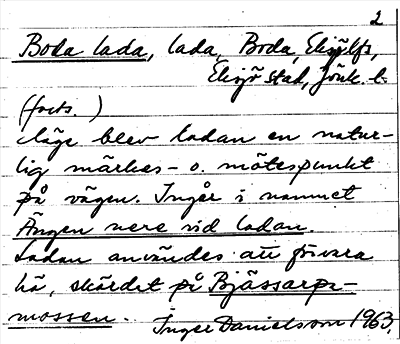 2
Boda lada, lada, Boda, Eksjö lfs,
Eksjö stad, Jönk. l.
(forts.)
läge blev ladan en natur-
lig märkes- o. mötespunkt
på vägen. Ingår i namnet
Ängen nere vid ladan.
Ladan användes att förvara
hö, skördet på Bjässarps-
mossen. Inger Danielsson 1963.